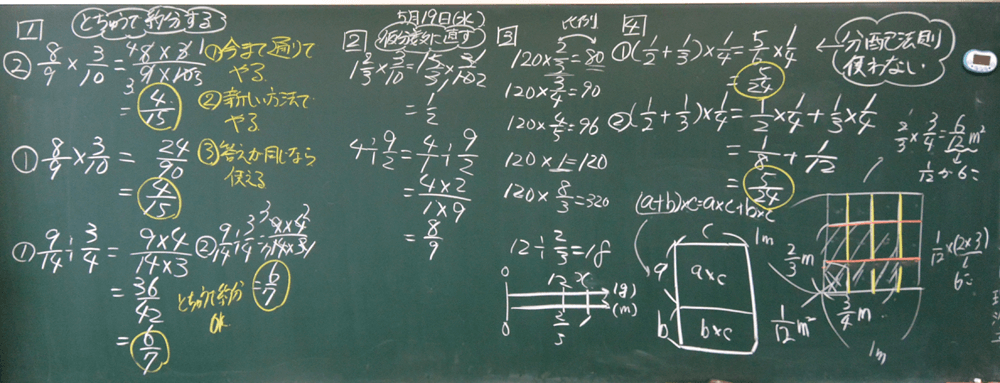 1 とちゅうで約分する
② 8/9 × 3/10 = 48×31/9×103
= 4/15
①今まで通りで
やる
②新しい方法で
やる
③答えが同じなら
使える
① 8/9 × 3/10 = 24/90
= 4/15
① 9/14 ÷ 3/4 = 9×4/14×3
= 36/42
= 6/7
② 9/14 ÷ 3/4 = 9×4/14×3
= 6/7
とちゅうで約分
OK
5月19日(水)
2 仮分数に直す
1 2/3 × 3/10 = 5/3 × 3/10
= 1/2
4 ÷ 9/2 = 4/1 ÷ 9/2
= 4×2/1×9
= 8/9
3 比例
120× 2/3 = 80
120× 3/4 = 90
120× 4/5 = 96
120×1=120
120× 8/3 = 320
12÷ 2/3 = 18
0 12 x (g)
0 2/3 1 (m)
4
①(1/2 + 1/3)× 1/4 = 5/6 × 1/4
= 5/24
← 分配法則
使わない
②(1/2 + 1/3)× 1/4 = 1/2 × 1/4 + 1/3 × 1/4
= 1/8 + 1/12
= 5/24
(a+b)×c=a×c+b×c
c
a
a×c
b
b×c
2/3 × 3/4 = 6/12 m²
1/12 が 6こ
1m
2/3 m
1/12 m²
3/4 m
1m
1/12 ×(2×3)
6こ